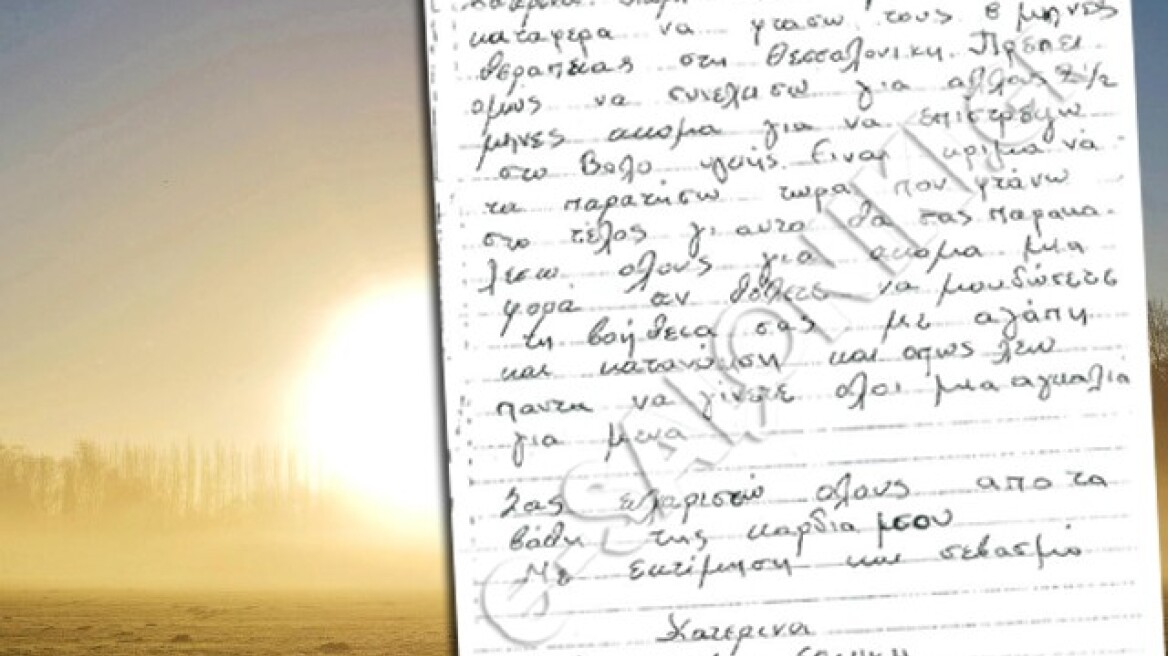 καταφερα να φτασω τους 8 μηνες
θεραπειας στη Θεσσαλονικη. Πρεπει
ομως να συνεχισω για αλλους 2 1/2
μηνες ακομα για να επιστρεψω
στο Βολο υγιής. Ειναι κριμα να
τα παρατήσω τωρα που φτάνω
στο τέλος γι αυτο θα σας παρακα-
λεσω ολους για ακομα μια
φορά αν θέλετε να μου δώσετε
τη βοήθεια σας με αγάπη
και κατανόηση και οπως λεω
παντα να γίνετε ολοι μια αγκαλιά
για μενα
Σας ευχαριστώ ολους απο τα
βάθη της καρδια μσου
Με εκτίμηση και σεβασμό
Κατερινα